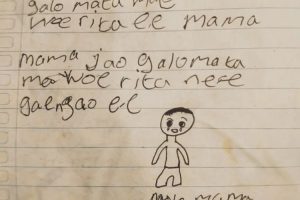 galo mata mae
woe rita ee mama
mama jao galomata
ma woe rita nese
gaengao ee
mama